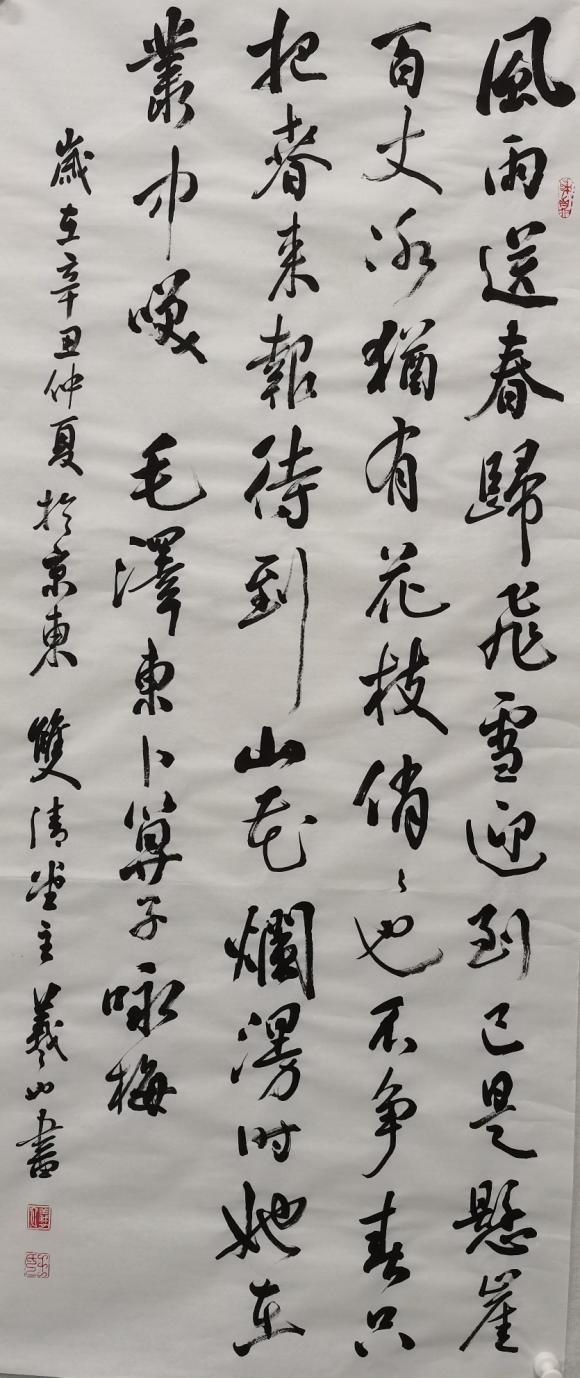 風雨送春歸飛雪迎到已是懸崖
百丈冰猶有花枝俏〻也不争春只
把春来報待到山花爛漫时她在
叢中咲 毛澤東卜算子咏梅
歲在辛丑仲夏於京東 雙清堂主羲山書